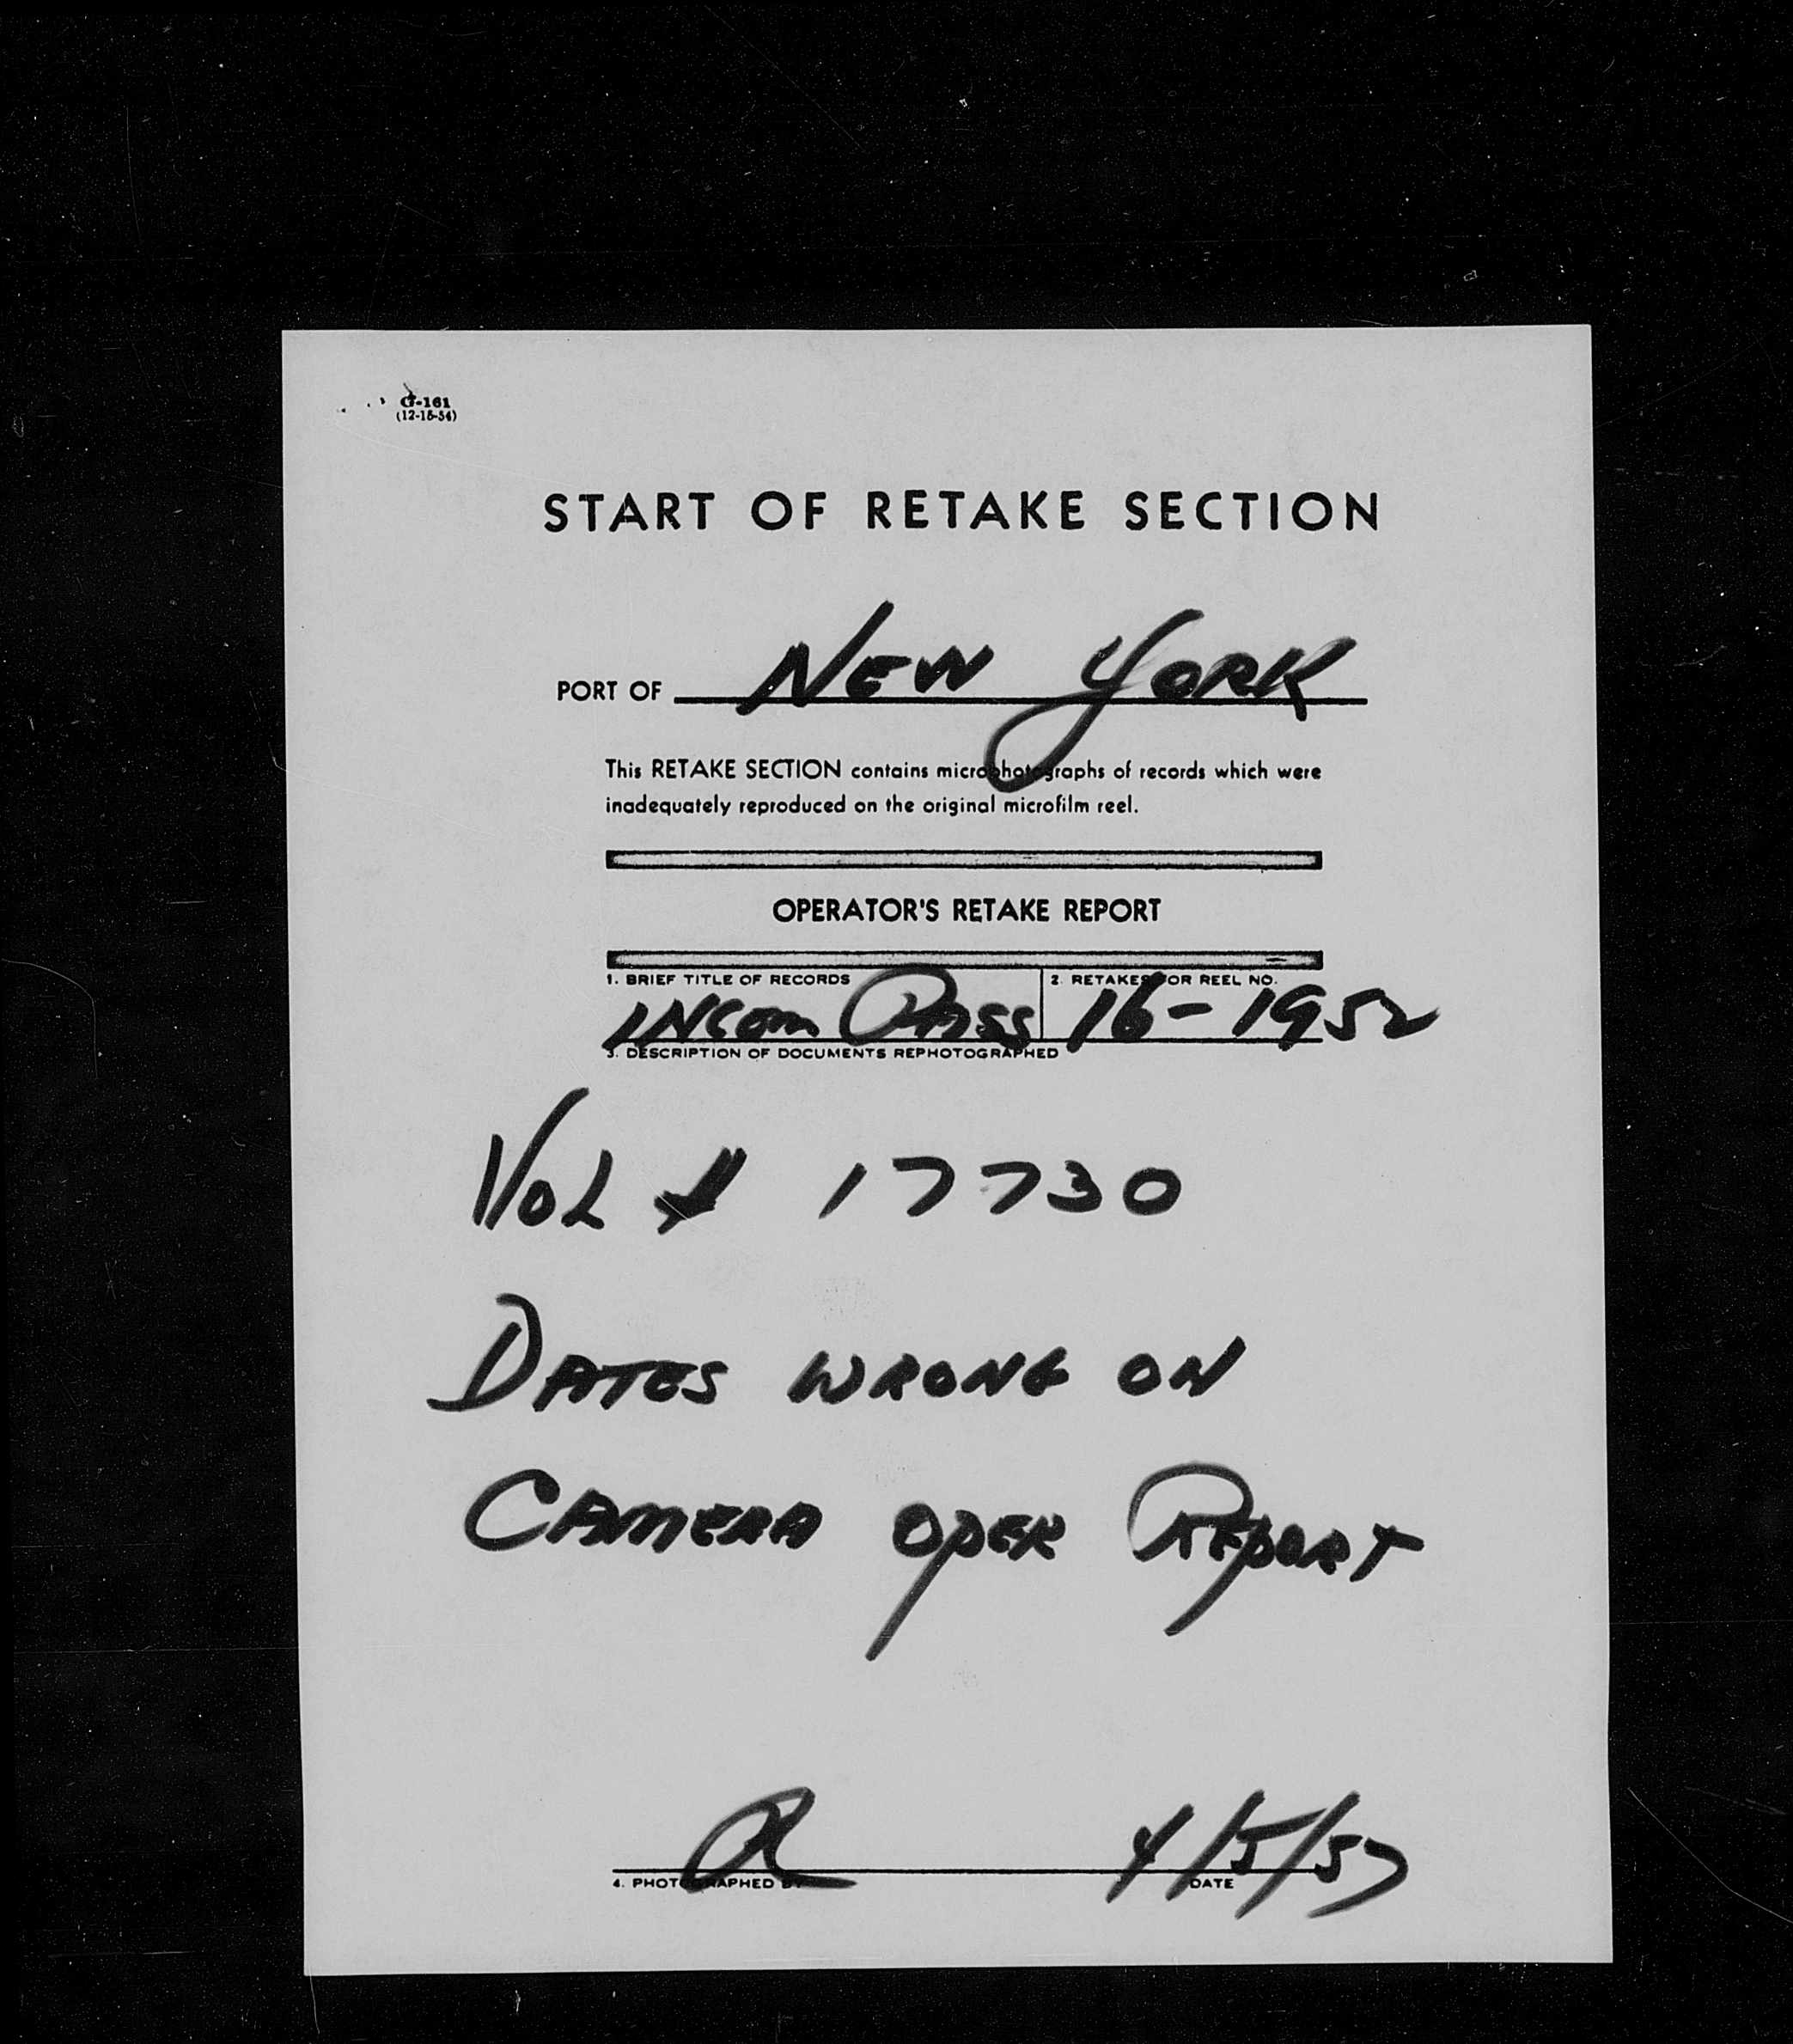 G-161
(12-15-54)
START OF RETAKE SECTION
PORT OF NEW YORK
This RETAKE SECTION contains microphotographs of records which were
inadequately reproduced on the original microfilm reel.
OPERATOR'S RETAKE REPORT
1. BRIEF TITLE OF RECORDS 2. RETAKES FOR REEL NO.
INCOM PASS 16-1952
3. DESCRIPTION OF DOCUMENTS REPHOTOGRAPHED
VOL # 17730
DATES WRONG ON
CAMERA OPER REPORT
4/5/57
4. PHOTOGRAPHED BY DATE